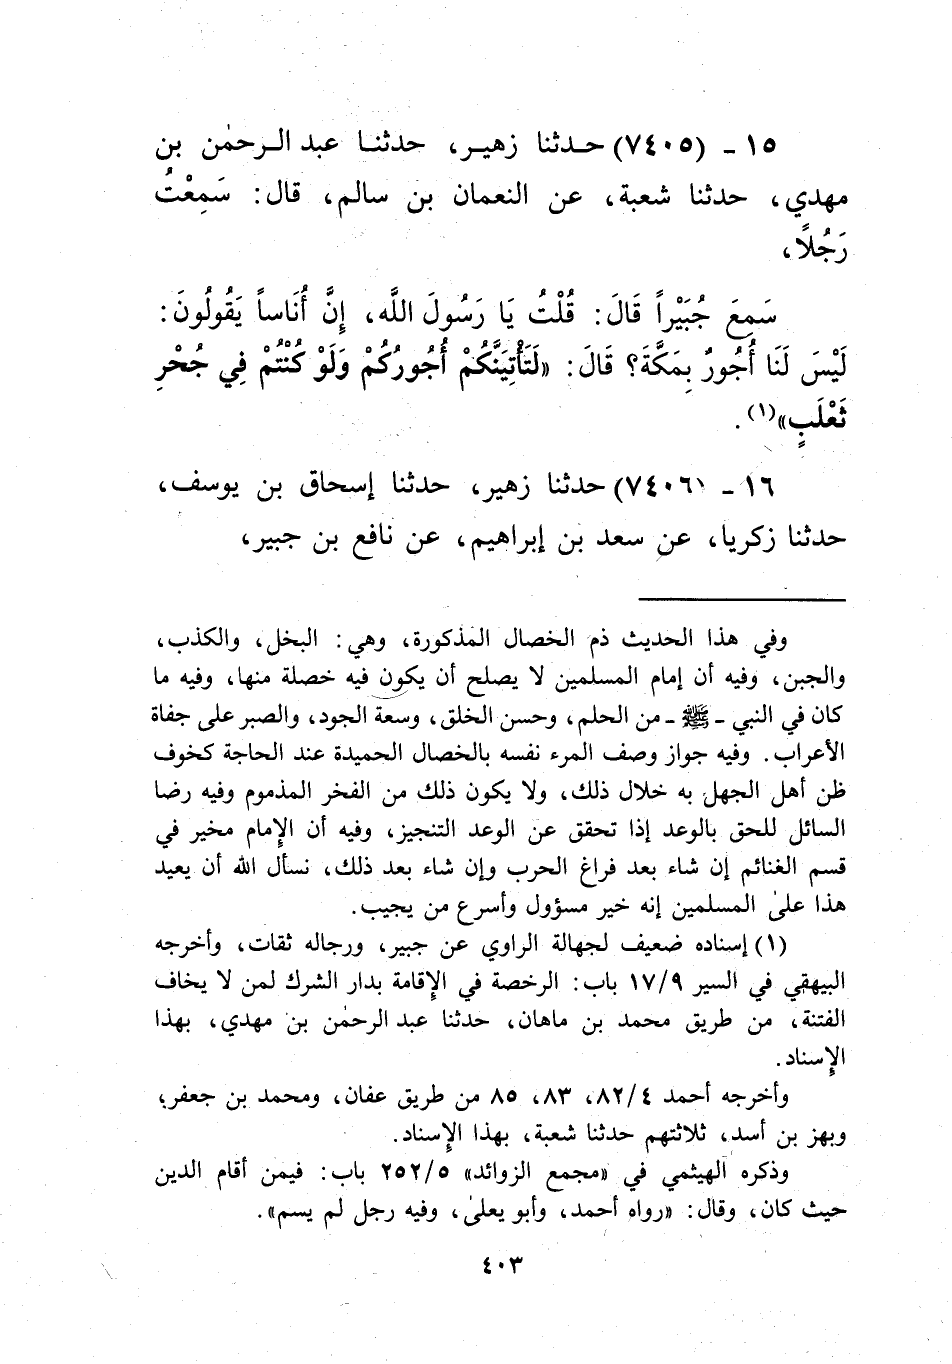 ١٥ - (٧٤٠٥) حـدثنا زهيـر، حدثنـا عبد الـرحمٰن بن
مهدي، حدثنا شعبة، عن النعمان بن سالم، قال: سَمِعْتُ
رَجُلاً،
سَمِعَ جُبَيْراً قَالَ: قُلْتُ يَا رَسُولَ اللَّه، إِنَّ أُنَاساً يَقُولُونَ:
لَيْسَ لَنَا أُجُورٌ بِمَكَّةَ؟ قَالَ: «لَتَأْتِيَنَّكُمْ أُجُورُكُمْ وَلَوْ كُنْتُمْ فِي جُحْرِ
ثَعْلَبٍ»(١).
١٦ - (٧٤٠٦) حدثنا زهير، حدثنا إسحاق بن يوسف،
حدثنا زكريا، عن سعد بن إبراهيم، عن نافع بن جبير،
وفي هذا الحديث ذم الخصال المذكورة، وهي: البخل، والكذب،
والجبن، وفيه أن إمام المسلمين لا يصلح أن يكون فيه خصلة منها، وفيه ما
كان في النبي - ﷺ - من الحلم، وحسن الخلق، وسعة الجود، والصبر على جفاة
الأعراب. وفيه جواز وصف المرء نفسه بالخصال الحميدة عند الحاجة كخوف
ظن أهل الجهل به خلال ذلك، ولا يكون ذلك من الفخر المذموم وفيه رضا
السائل للحق بالوعد إذا تحقق عن الوعد التنجيز، وفيه أن الإمام مخير في
قسم الغنائم إن شاء بعد فراغ الحرب وإن شاء بعد ذلك، نسأل الله أن يعيد
هذا علىٰ المسلمين إنه خير مسؤول وأسرع من يجيب.
(١) إسناده ضعيف لجهالة الراوي عن جبير، ورجاله ثقات، وأخرجه
البيهقي في السير ١٧/٩ باب: الرخصة في الإقامة بدار الشرك لمن لا يخاف
الفتنة، من طريق محمد بن ماهان، حدثنا عبد الرحمٰن بن مهدي، بهذا
الإسناد.
وأخرجه أحمد ٨٢/٤، ٨٣، ٨٥ من طريق عفان، ومحمد بن جعفر،
وبهز بن أسد، ثلاثتهم حدثنا شعبة، بهذا الإسناد.
وذكره الهيثمي في «مجمع الزوائد» ٢٥٢/٥ باب: فيمن أقام الدين
حيث كان، وقال: «رواه أحمد، وأبو يعلىٰ، وفيه رجل لم يسم».
٤٠٣